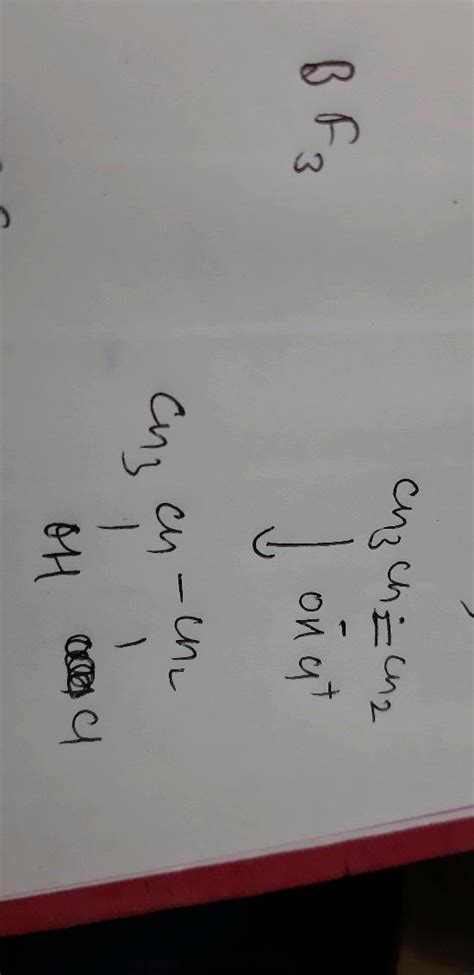 BF3
CH3CH=CH2
↓ OH⁻ Cl⁺
CH3 CH – CH2
OH Cl